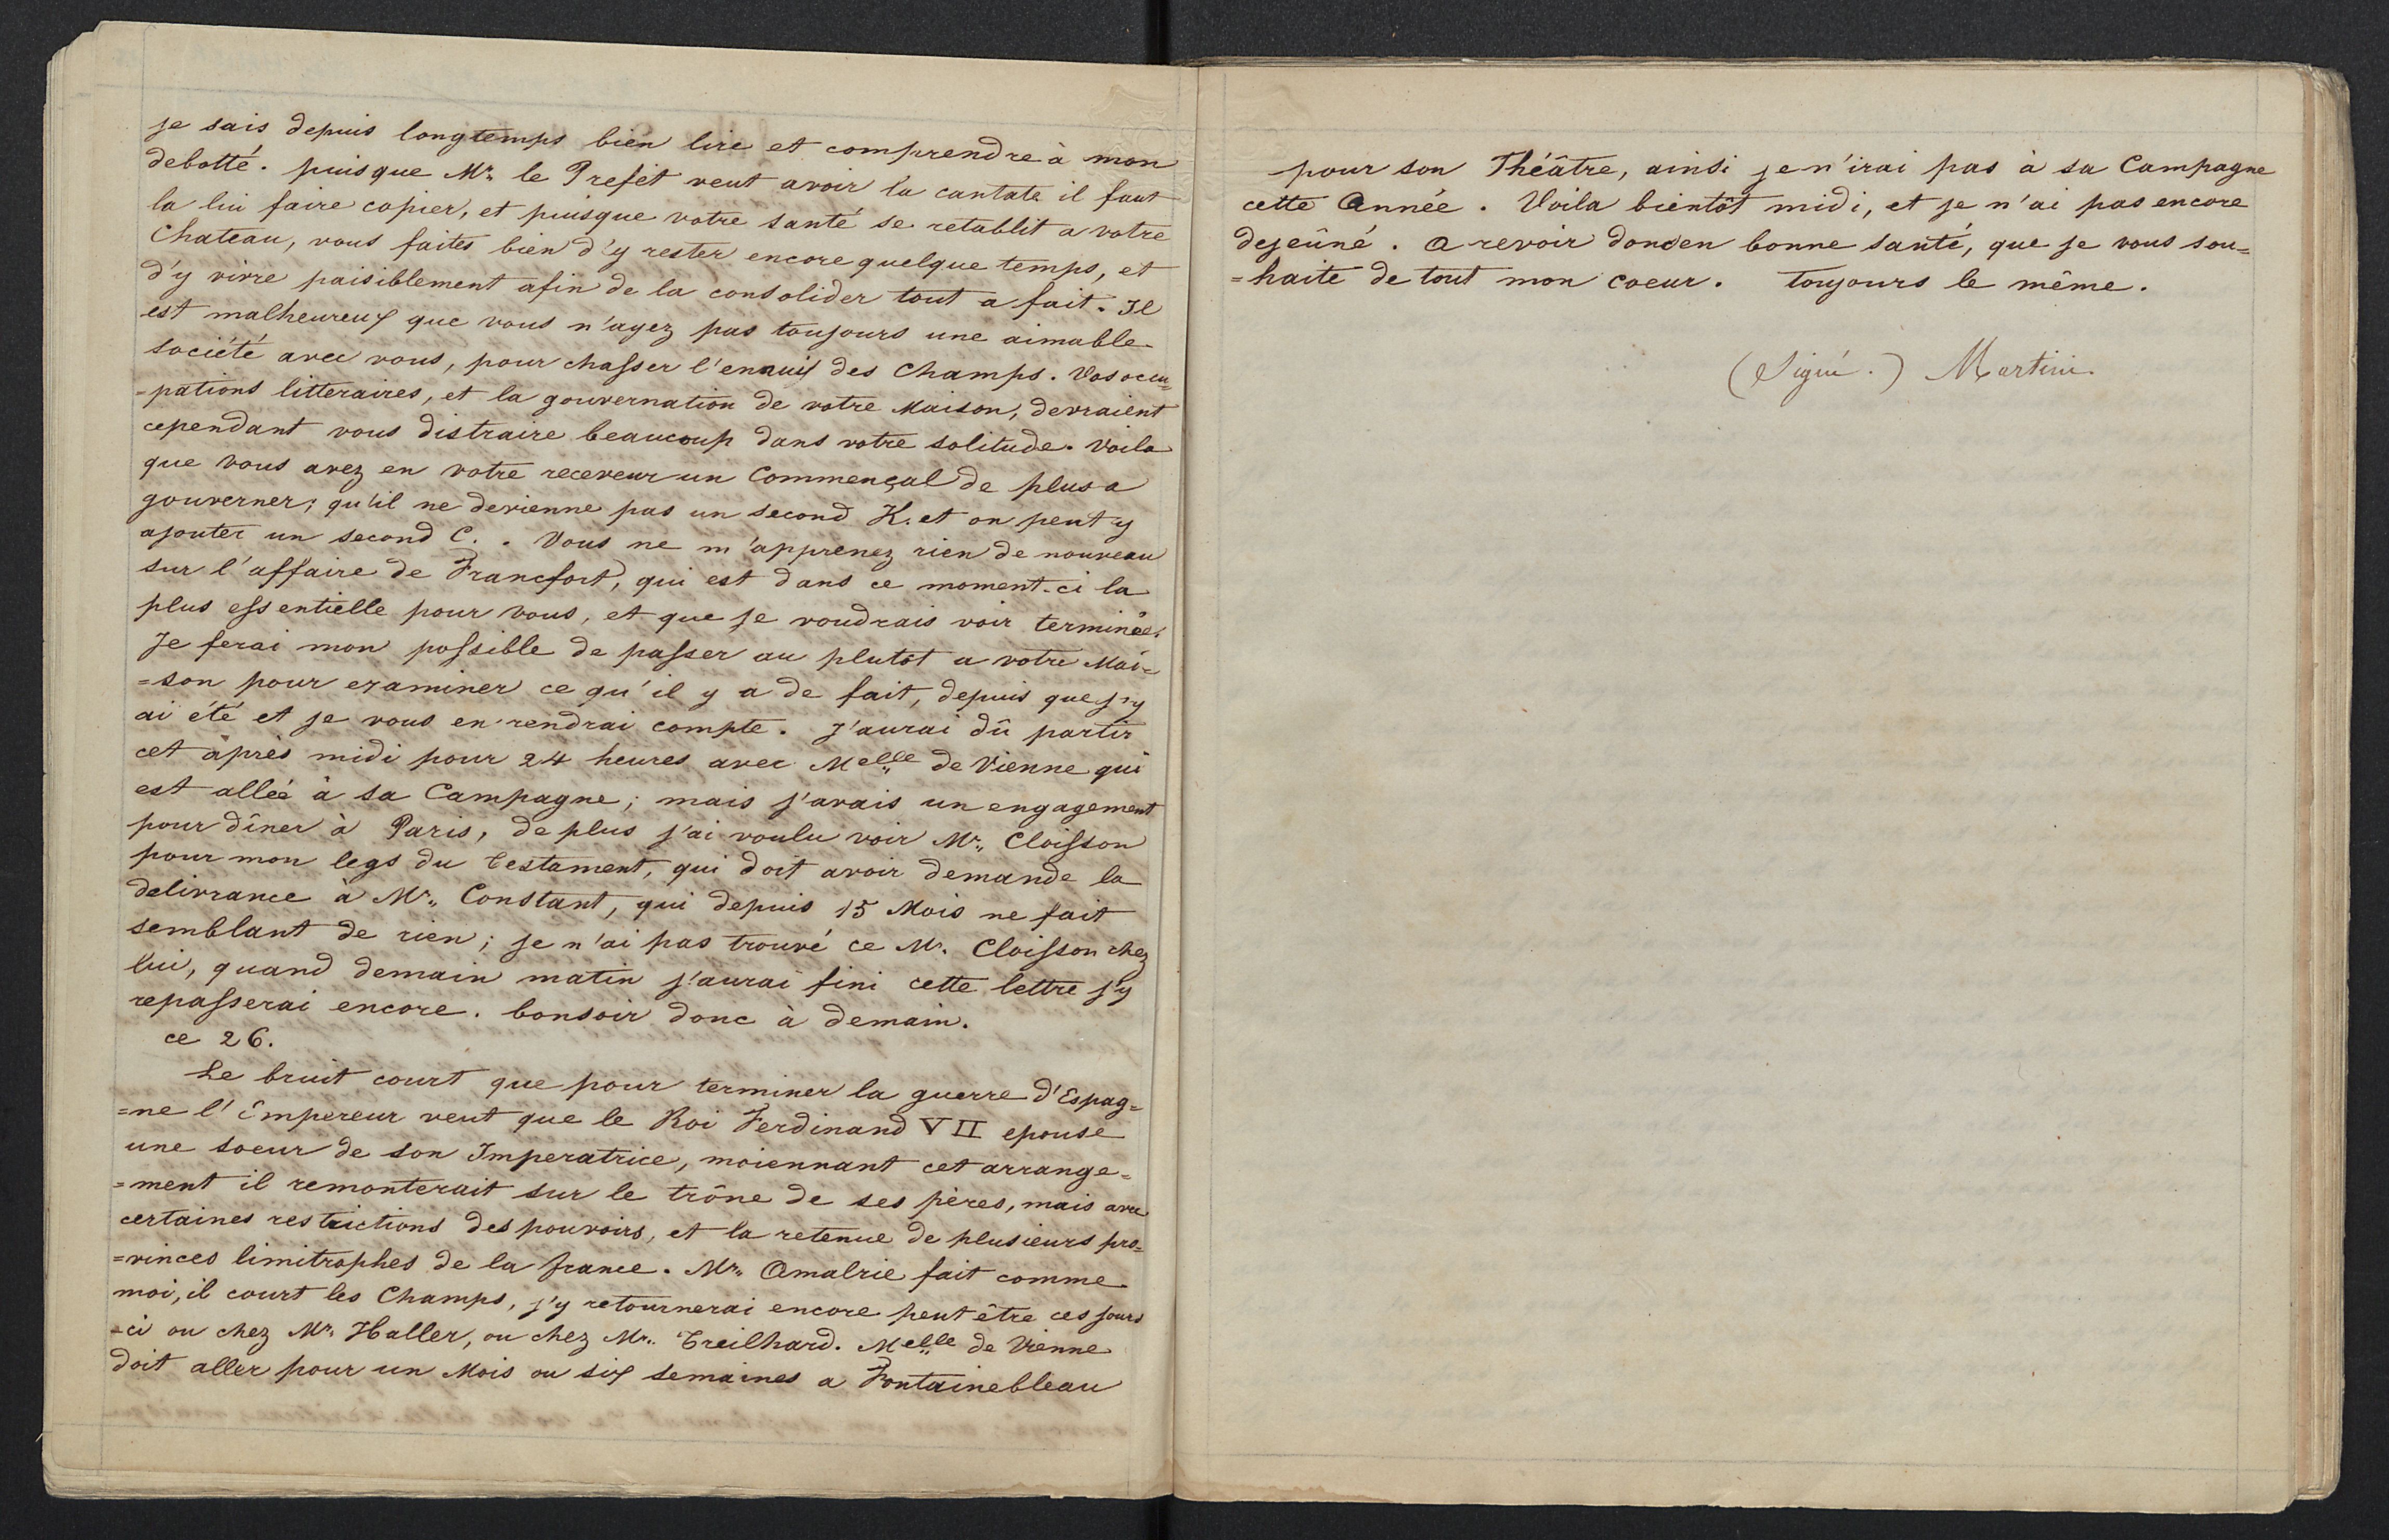 je sais depuis longtemps bien lire et comprendre à mon
debotté. puisque Mr. le Prefet veut avoir la cantate il faut
la lui faire copier, et puisque votre santé se retablit a votre
Chateau, vous faites bien d'y rester encore quelque temps, et
d'y vivre paisiblement afin de la consolider tout a fait. Il
est malheureux que vous n'ayez pas toujours une aimable
société avec vous, pour chasser l'ennui des Champs. Vos occu=
=pations litteraires, et la gouvernation de votre Maison, devraient
cependant vous distraire beaucoup dans votre solitude. Voila
que vous avez en votre receveur un Commençal de plus a
gouverner; qu'il ne devienne pas un second K. et on peut y
ajouter un second C. . Vous ne m'apprenez rien de nouveau
sur l'affaire de Francfort, qui est dans ce moment-ci la
plus essentielle pour vous, et que je voudrais voir terminée.
Je ferai mon possible de passer au plutôt a votre Mai=
=son pour examiner ce qu'il y a de fait, depuis que j'y
ai été et je vous en rendrai compte. J'aurai dû partir
cet après midi pour 24 heures avec Melle de Vienne qui
est allée à sa Campagne; mais j'avais un engagement
pour dîner à Paris, de plus j'ai voulu voir Mr. Cloisson
pour mon legs du testament, qui doit avoir demande la
delivrance à Mr. Constant, qui depuis 15 Mois ne fait
semblant de rien; je n'ai pas trouvé ce Mr. Cloisson chez
lui, quand demain matin j'aurai fini cette lettre j'y
repasserai encore. bonsoir donc à demain.
ce 26.
Le bruit court que pour terminer la guerre d'Espag=
=ne l'Empereur veut que le Roi Ferdinand VII epouse
une soeur de son Imperatrice, moiennant cet arrange=
=ment il remonterait sur le trône de ses pères, mais avec
certaines restrictions des pouvoirs, et la retenue de plusieurs pro=
=vinces limitrophes de la france. Mr. Amalric fait comme
moi, il court les Champs, j'y retournerai encore peut être ces jours
-ci ou chez Mr. Haller, ou chez Mr. Treilhard. Melle de Vienne
doit aller pour un Mois ou six semaines a Fontainebleau
pour son Théâtre, ainsi je n'irai pas à sa Campagne
cette Année. Voila bientôt midi, et je n'ai pas encore
dejeûné. A revoir donc en bonne santé, que je vous sou=
=haite de tout mon coeur. toujours le même.
(Signé.) Martini.